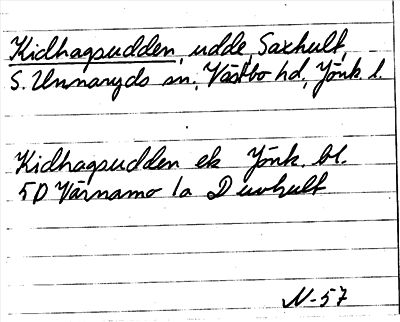 Kidhagsudden, udde, Saxhult,
S. Unnaryds sn, Västbo hd, Jönk. l.
Kidhagsudden ek Jönk. bl.
5D Värnamo 1a Duvhult
N-57